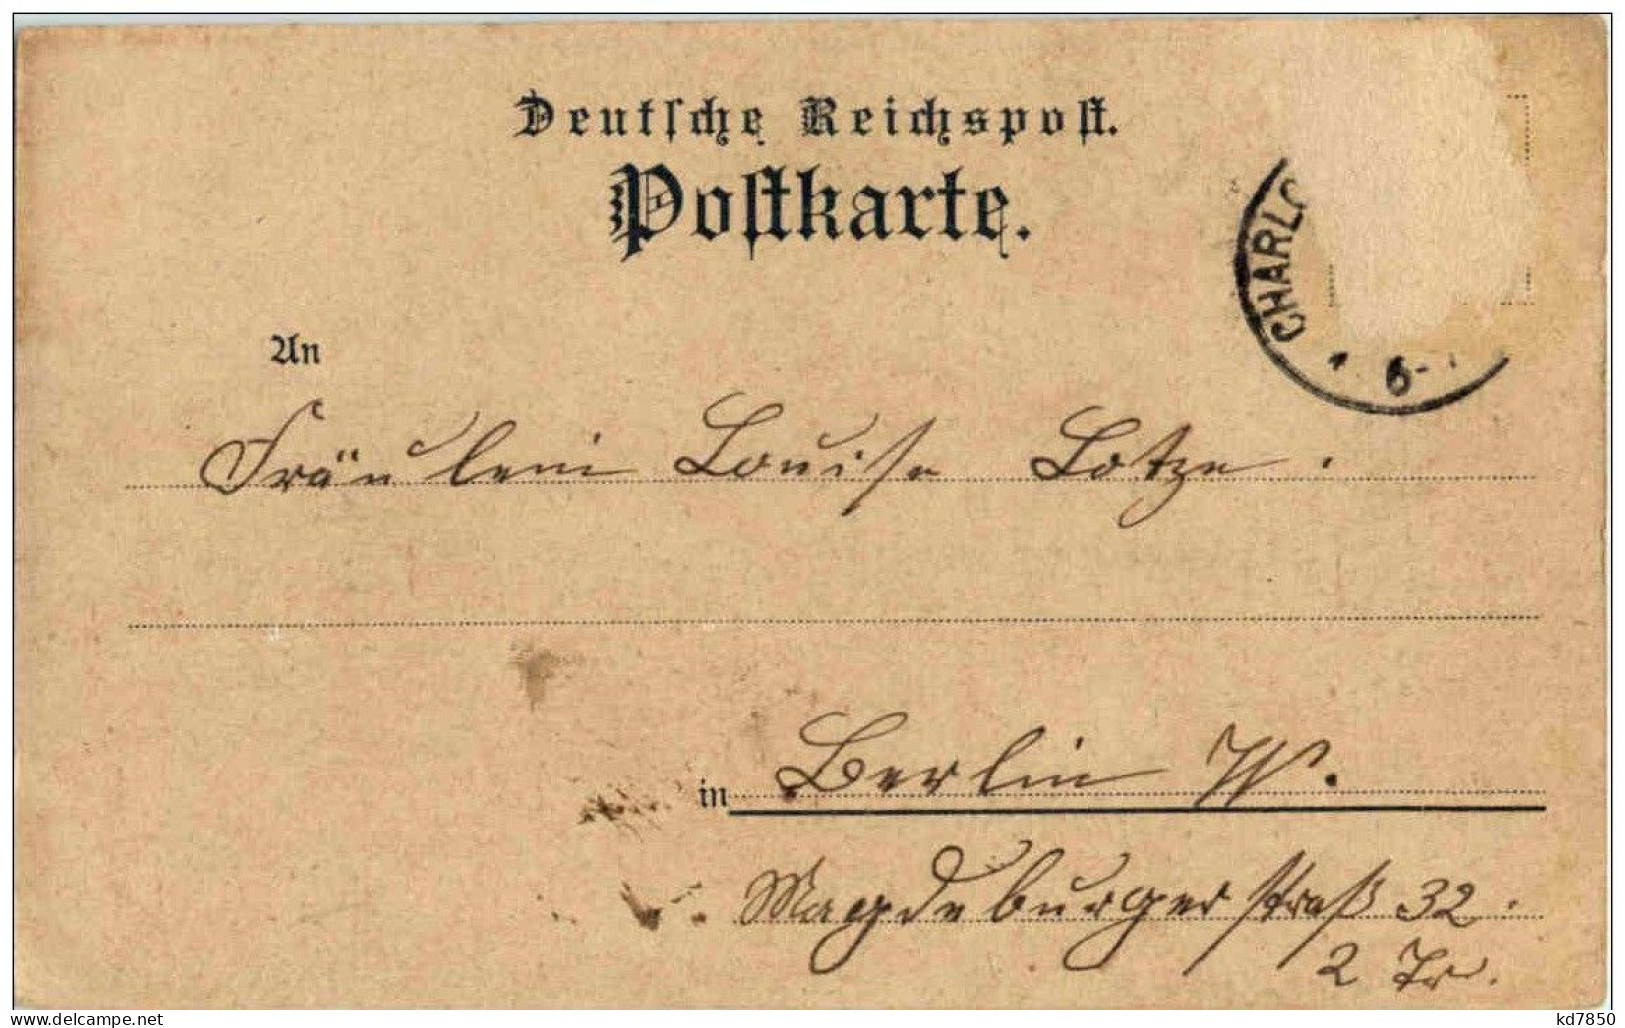 Deutsche Reichspost.
Postkarte.
CHARLO
6-
An
Fräulein Louise Lotze.
in Berlin W.
Magdeburgerstraß 32.
2 Tr.
www.delcampe.net
kd7850